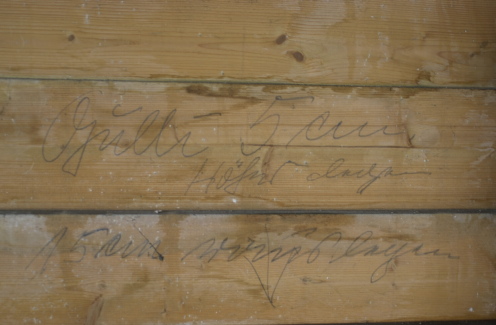 Gulli 5 cm
Höher legen
15 cm legen